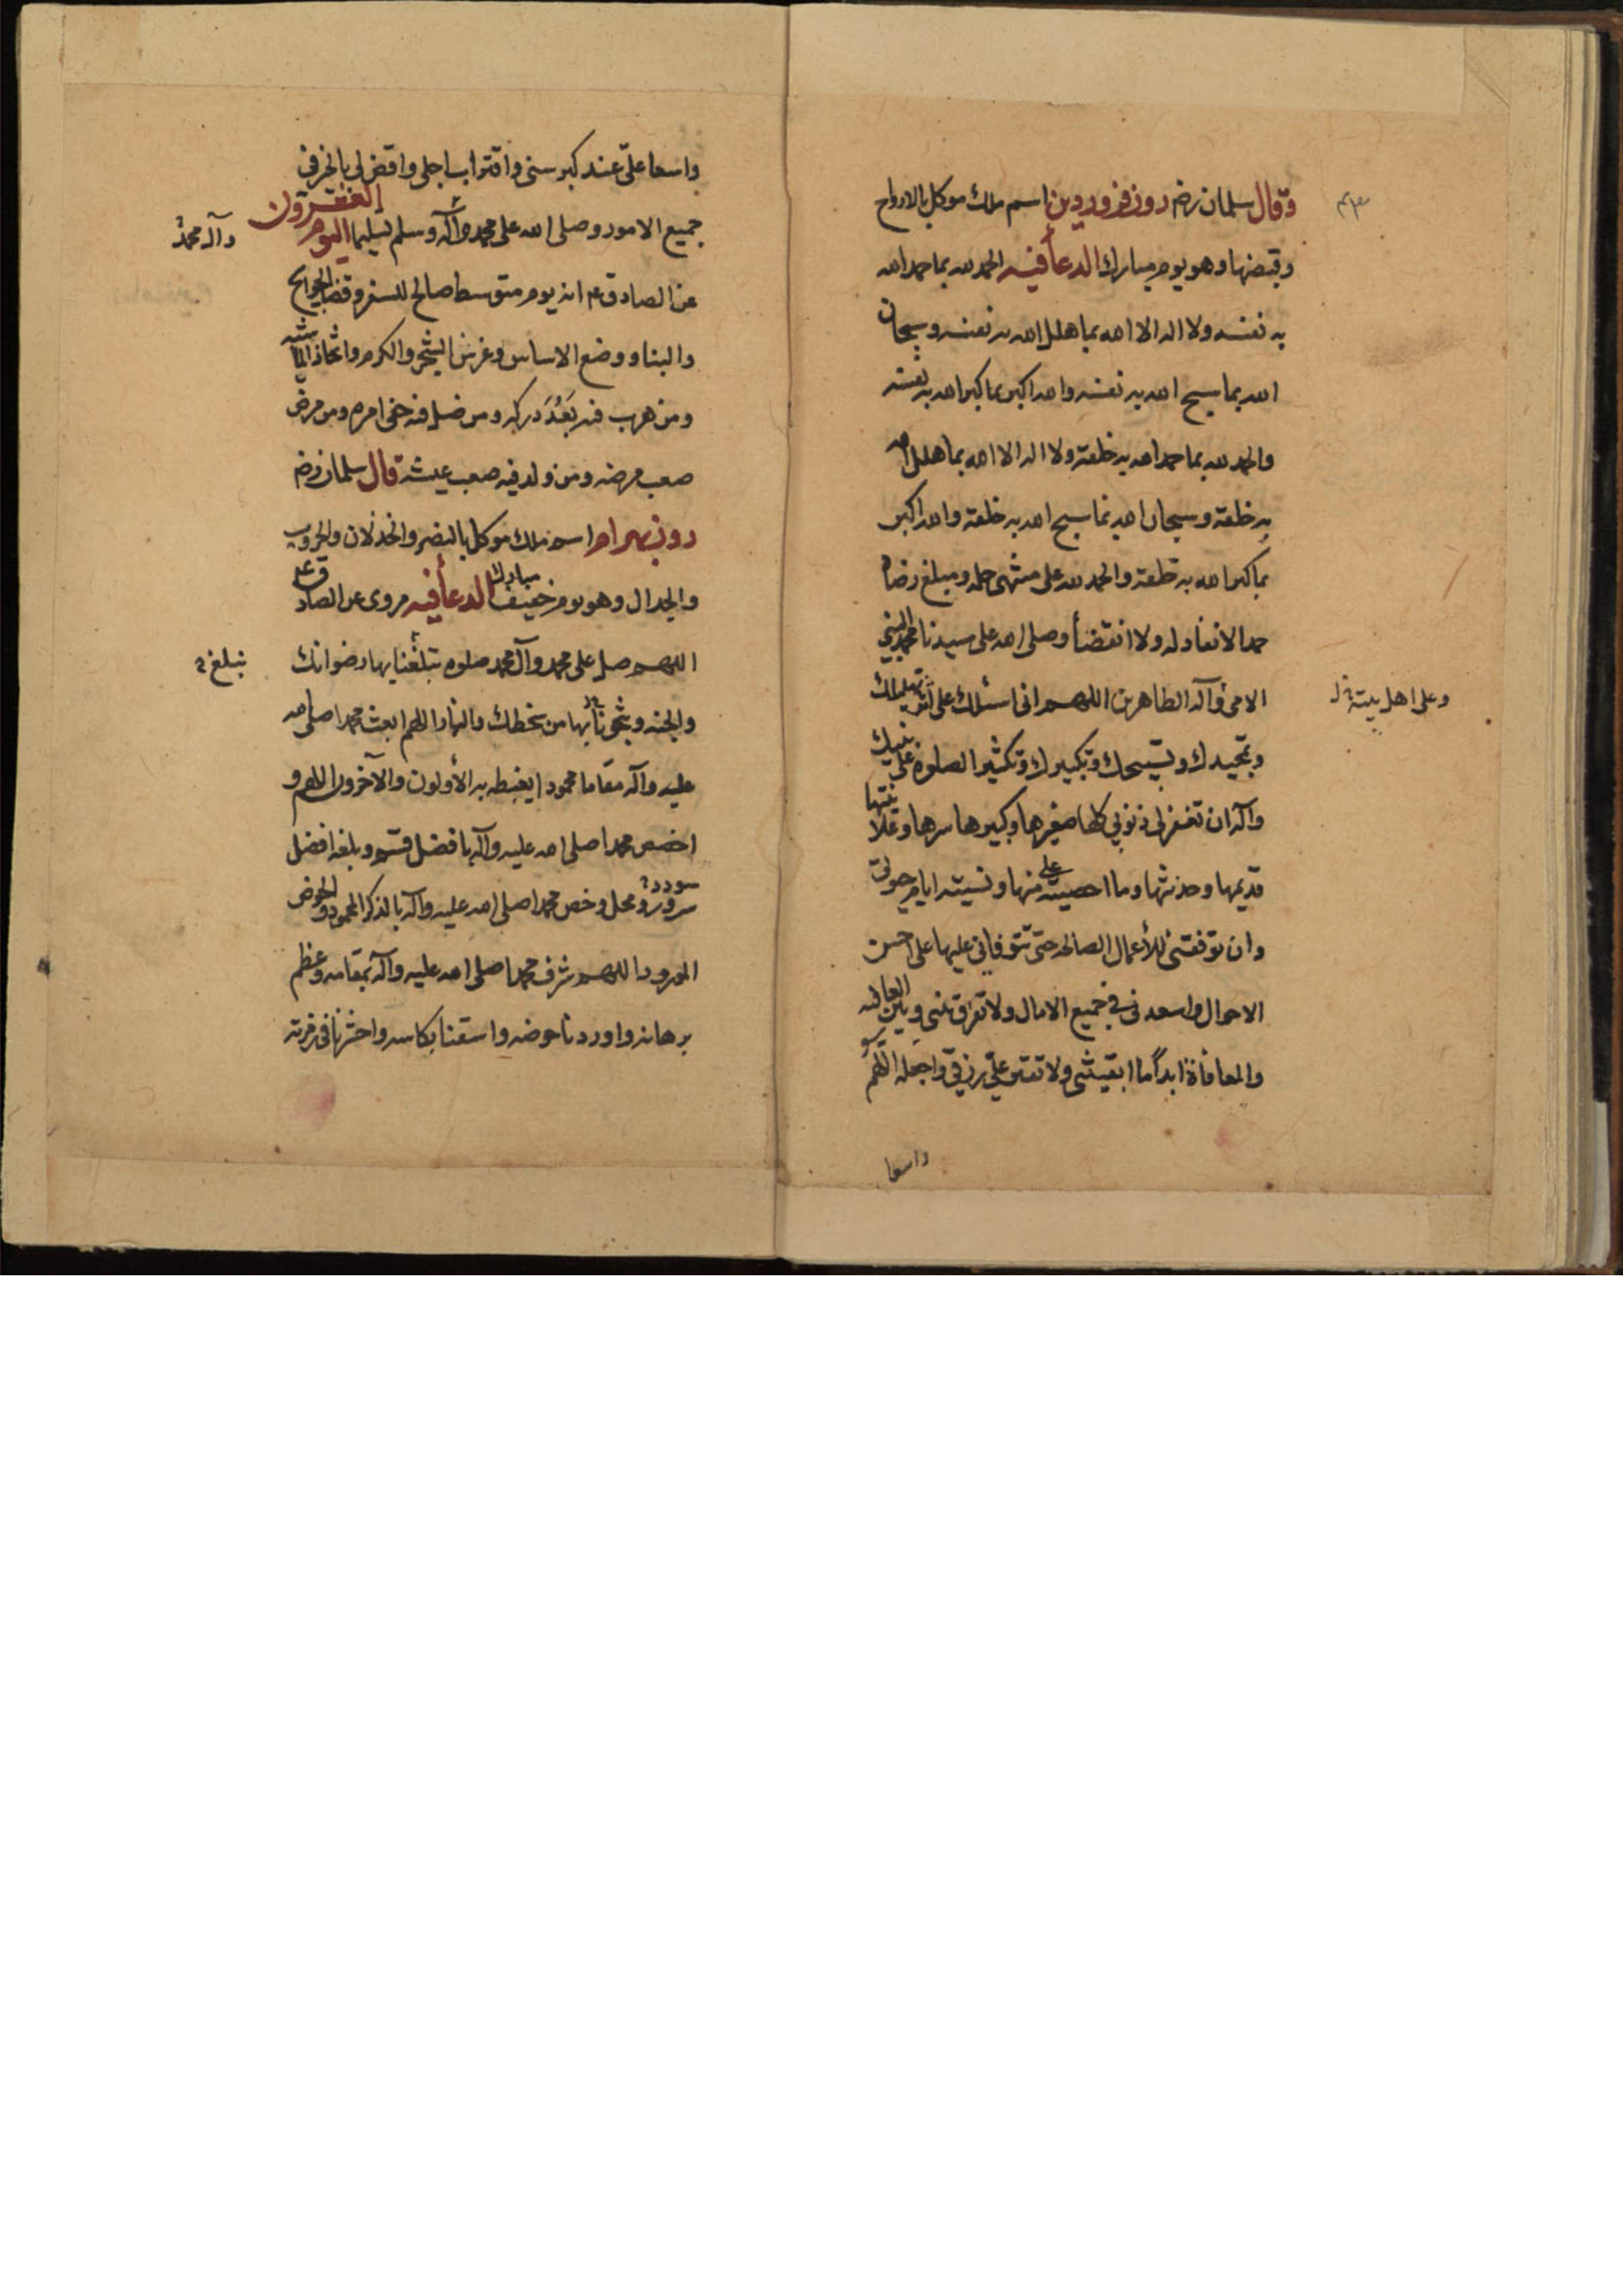 وقال سلمان رضه روز فروردين اسم ملك موكل بالارواح
وقبضها وهو يوم مبارك الدعأ فيه الحمد لله بما حمد الله
به نفسه ولا اله الا الله بما هلل الله به نفسه وسبحان
الله بما سبح الله به نفسه والله اكبر بما كبر الله به نفسه
والحمد لله بما حمد الله به خلقه ولا اله الا الله بما هلل الله
به خلقه وسبحان الله بما سبح الله به خلقه والله اكبر
بما كبر الله به خلقه والحمد لله على منتهى حلمه ومبلغ رضاه
حمدا لا نفاد له ولا انقضأ وصلى الله على سيدنا محمد النبي
الامي وآله الطاهرين اللهم اني اسئلك على اثر تهليلك
وعلى اهل بيته
وتمجيدك وتسبيحك وتكبيرك وتكثير الصلوة على نبيك
وآله ان تغفر لي ذنوبي كلها صغيرها وكبيرها سرها وعلانيتها
قديمها وحديثها وما احصيته على منها ونسيته ايام حيوتي
وان توفقني للأعمال الصالحه حتى تتوفاني عليها على احسن
الاحوال واسعدني في جميع الامال ولا تفرق بيني وبين العافيه
والمعافاة ابداً ما ابقيتني ولا تقتر علي رزقي واجعله اللهم
واسعا
واسعا عليّ عند كبر سني واقتراب اجلي واقض لي بالخير في
جميع الامور وصلى الله على محمد وآله وسلم تسليما اليوم العشرون
وآل محمد
عن الصادق ع انه يوم متوسط صالح للسفر وقضأ الحوايج
والبناء ووضع الاساس وغرس الشجر والكرم واتخاذ الماشيه
ومن هرب فيه بَعُدَ دركه ومن ضل فيه خفى امره ومن مرض
صعب مرضه ومن ولد فيه صعب عيشه قال سلمان رضه
روز بهرام اسم ملك موكل بالنصر والخذلان والحروب
والجدال وهو يوم خفيف مبارك الدعأ فيه مروى عن الصادق ع
اللهم صل على محمد وآل محمد صلوة تبلغنا بها رضوانك
نبلغ
والجنه وتنجينا بها من سخطك والنار اللهم ابعث محمدا صلى الله
عليه وآله مقاما محمودا يغبطه به الأولون والآخرون اللهم و
اخصص محمدا صلى الله عليه وآله بافضل قسم وبلغه افضل
سودد ومحل وخص محمدا صلى الله عليه وآله بالذكر المحمود والحوض
المورود اللهم شرف محمدا صلى الله عليه وآله بمقامه وعظم
برهانه واوردنا حوضه واسقنا بكاسه واحشرنا في زمرته